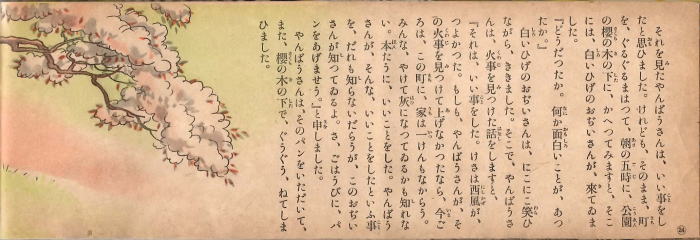 それを見たやんばうさんは、いい事をし
たと思ひました。けれども、そのまま、町
を、ぐるぐるまはつて、朝の五時に、公園
の櫻の木の下に、かへつてみますと、そこ
には、白いひげのおぢいさんが、來てゐま
した。
『どうだつたか。何か面白いことが、あつ
たか。』
白いひげのおぢいさんは、にこにこ笑ひ
ながら、ききました。そこで、やんばうさ
んは、火事を見つけた話をしますと、
『それは、いい事をした。けさは西風が、
つよかつた。もしも、やんばうさんが、そ
の火事を見つけて上げなかつたなら、今ご
ろは、この町に、家は一けんもなからう。
みんな、やけて灰になつてゐるかも知れな
い。本たうに、いいことをした。やんばう
さんが、そんな、いいことをしたといふ事
を、だれも知らないだらうが、このおぢい
さんが知つてゐるよ。さ、ごはうびに、パ
ンをあげませう。』と申しました。
やんばうさんは、そのパンをいただいて、
また、櫻の木の下で、ぐうぐう、ねてしま
ひました。
24